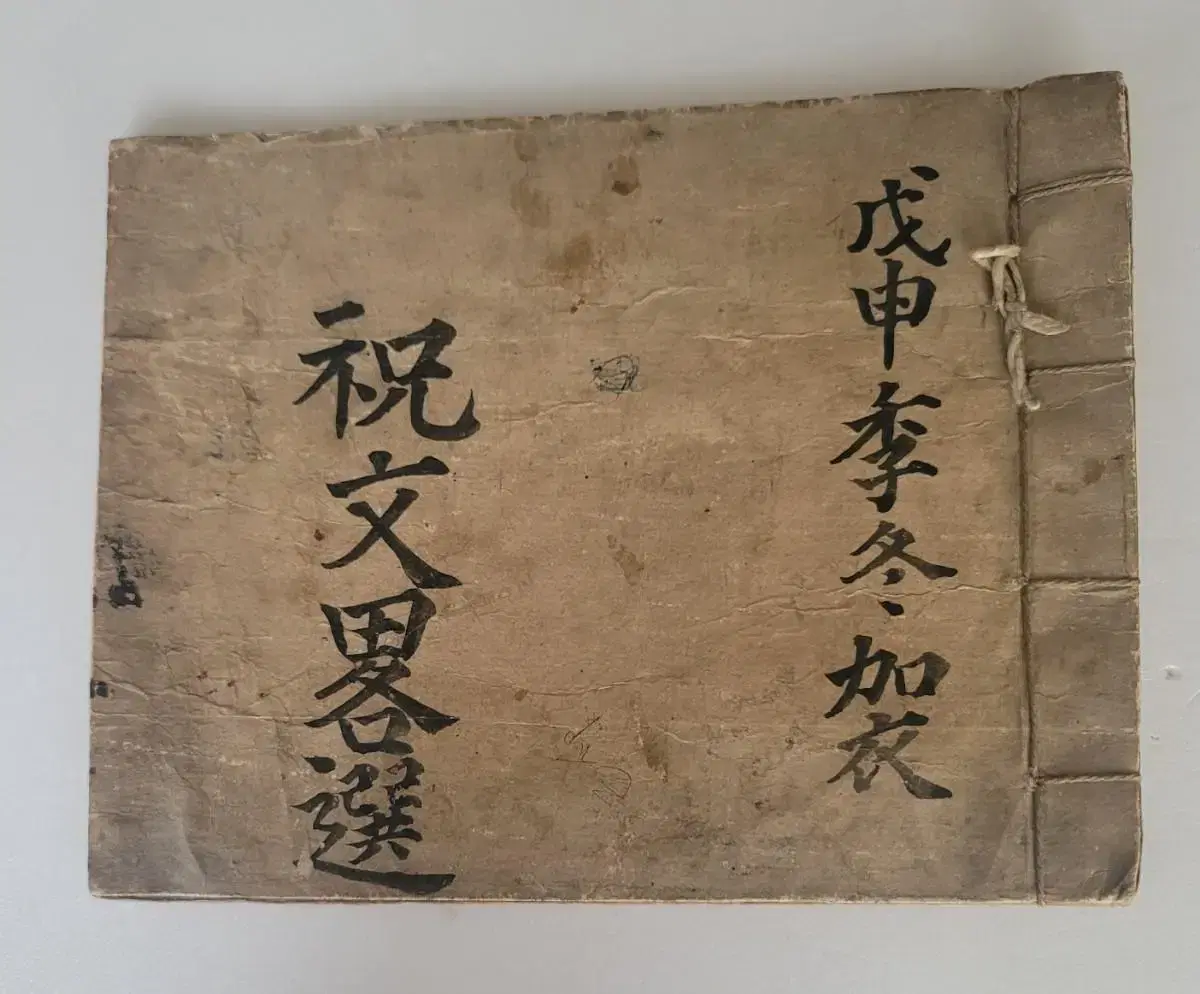 戊申季冬加衣
祝文畧選